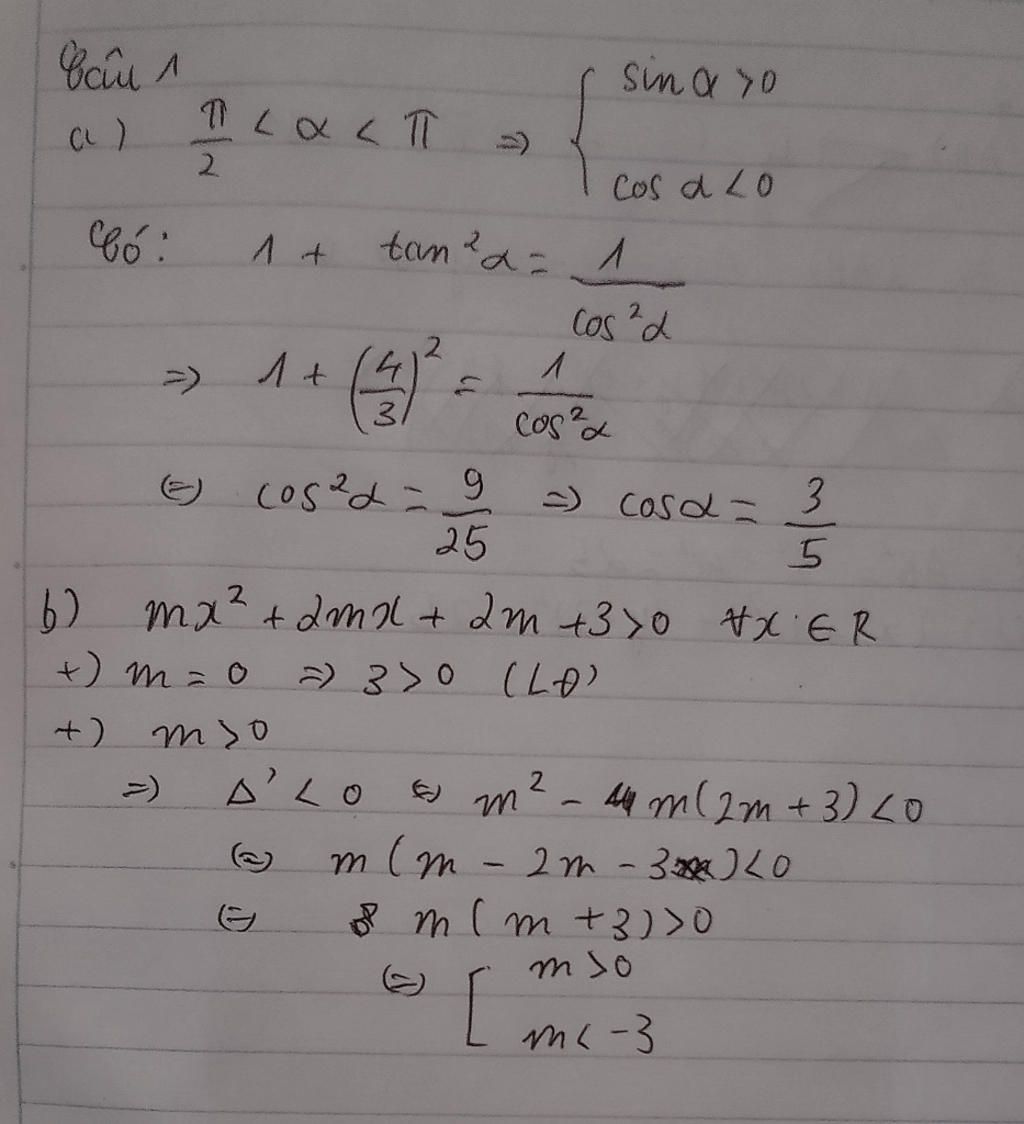 Câu 1
a) π/2 < α < π ⇒ { sin α > 0
cos α < 0
Có: 1 + tan²α = 1/cos²α
⇒ 1 + (4/3)² = 1/cos²α
⇔ cos²α = 9/25 ⇒ cosα = 3/5
b) mx² + 2mx + 2m + 3 > 0 ∀x ∈ R
+) m = 0 ⇒ 3 > 0 (LĐ)
+) m > 0
⇒ Δ' < 0 ⇔ m² - m(2m + 3) < 0
⇔ m(m - 2m - 3) < 0
⇔ m(m + 3) > 0
⇔ [ m > 0
m < -3